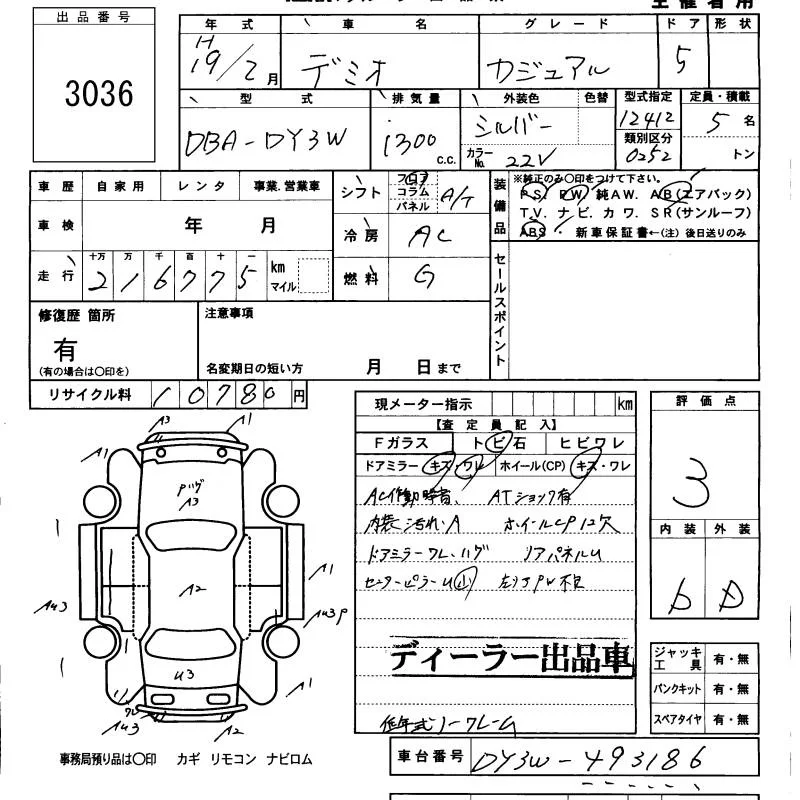 出品番号
3036
年式
車名
グレード
ドア
形状
主催者用
H
19/2月
デミオ
カジュアル
5
型式
排気量
外装色
色替
型式指定
定員・積載
DBA-DY3W
1300
C.C.
シルバー
カラーNo.
22V
12412
類別区分
0252
5名
トン
車歴
自家用
レンタ
事業.営業車
シフト
フロア
コラム
パネル
A/T
車検
年
月
冷房
AC
走行
十万
万
千
百
十
一
216775
km
マイル
燃料
G
装備品
※純正のみ〇印をつけて下さい。
PS. PW. 純AW. AB(エアバック)
TV. ナビ. カワ. SR(サンルーフ)
ABS ・ 新車保証書←(注) 後日送りのみ
セールスポイント
修復歴 箇所
有
(有の場合は〇印を)
注意事項
名変期日の短い方
月 日まで
リサイクル料
10780円
現メーター指示
km
【査定員記入】
Fガラス
トビ石
ヒビワレ
ドアミラー キズ・ワレ
ホイール(CP) キズ・ワレ
AC作動時音、 ATショック有
内装汚れ・A ホイールCP1ケ欠
ドアミラーワレ・ハゲ リアパネルU
センターピラーU小
ディーラー出品車
低年式ノークレーム
評価点
3
内装
外装
b
D
ジャッキ
工具
有・無
パンクキット
有・無
スペアタイヤ
有・無
A3
A1
A1
Pハゲ
A3
A2
A1
AU3
AU3P
U3
A1
ワレ
AU3
A2
事務局預り品は〇印 カギ リモコン ナビロム
車台番号
DY3W-493186